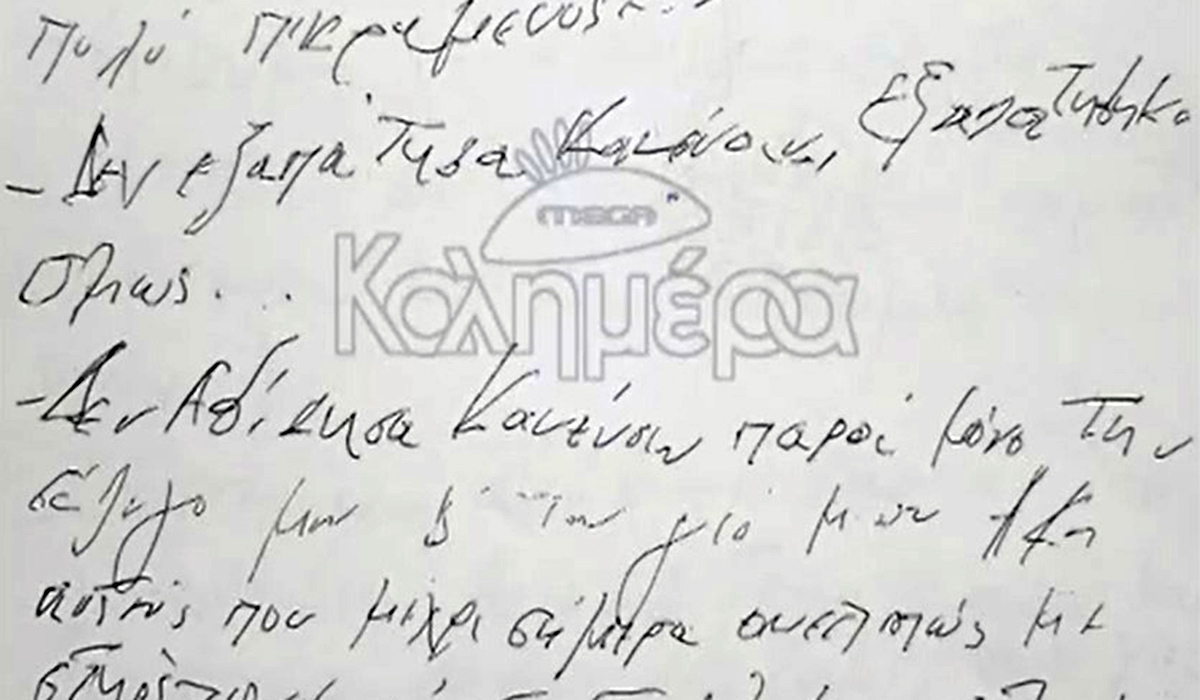 πολύ πικραμένος...
- Δεν εξαπάτησα Κανέναν, εξαπατήθηκα
όμως...
MEGA
Καλημέρα
- Δεν Αδίκησα Κανέναν παρά μόνο την
σύζυγο μου & τον γιό μου
αυτούς που μέχρι σήμερα συνεπώς με